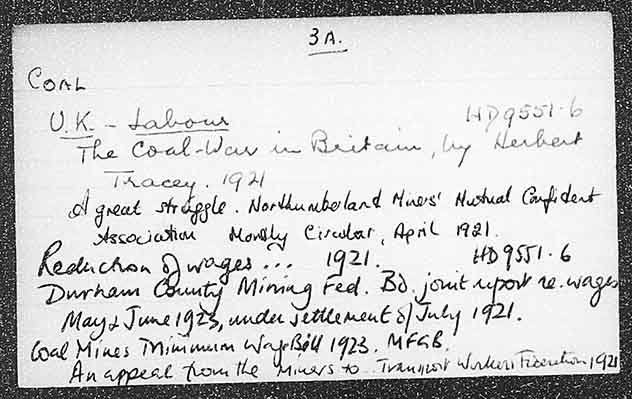 3A.
COAL
U.K. - Labour HD9551.6
The Coal-War in Britain, by Herbert
Tracey. 1921
A great struggle. Northumberland Miners' Mutual Confident
Association Monthly Circular, April 1921.
Reduction of wages ... 1921. HD9551.6
Durham County Mining Fed. Bd. joint report re. wages
May & June 1923, under settlement of July 1921.
Coal Mines Minimum Wage Bill 1923. MFGB.
An appeal from the Miners to Transport Workers Federation 1921